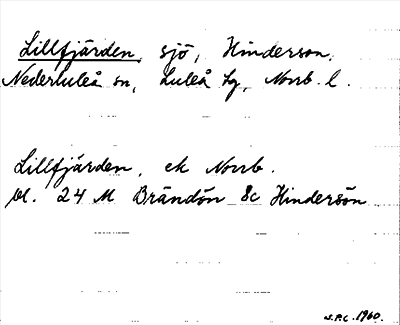 Lillfjärden, sjö, Hinderson,
Nederluleå sn, Luleå tg, Norrb. l.
Lillfjärden, ek Norrb.
bl. 24 M Brändön 8c Hindersön
J.P.L. 1960.